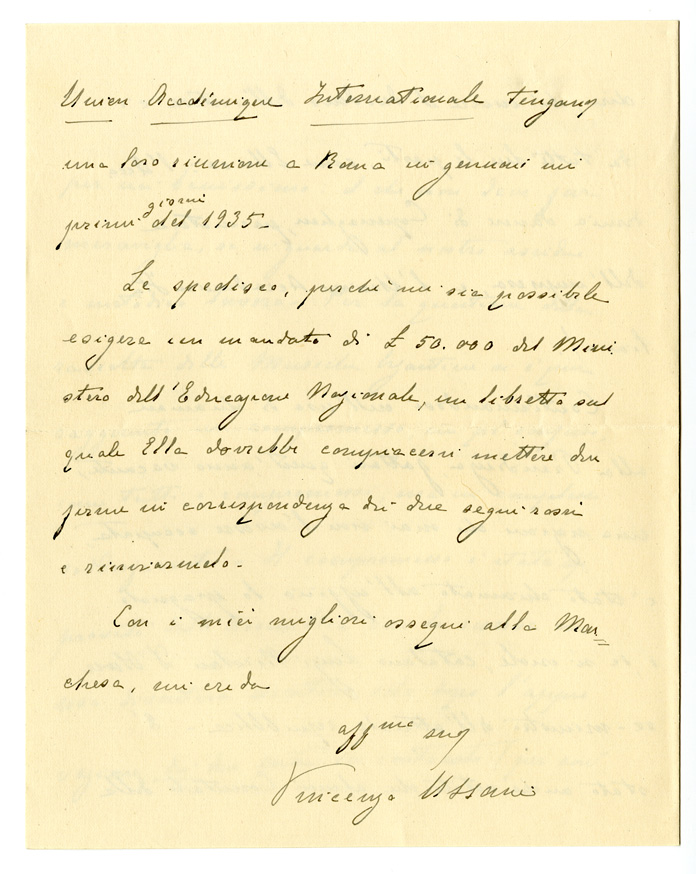 Union Académique Internationale tengano
una loro riunione a Roma in gennaio nei
primi giorni del 1935-
Le spedisco, perché mi sia possibile
esigere un mandato di £ 50.000 del Mini
stero dell'Educazione Nazionale, un libretto sul
quale Ella dovrebbe compiacersi mettere due
firme in corrispondenza dei due segni rossi
e rinviarmelo.
Con i miei migliori ossequi alla Mar=
chesa, mi creda
affmo suo
Vincenzo Ussani